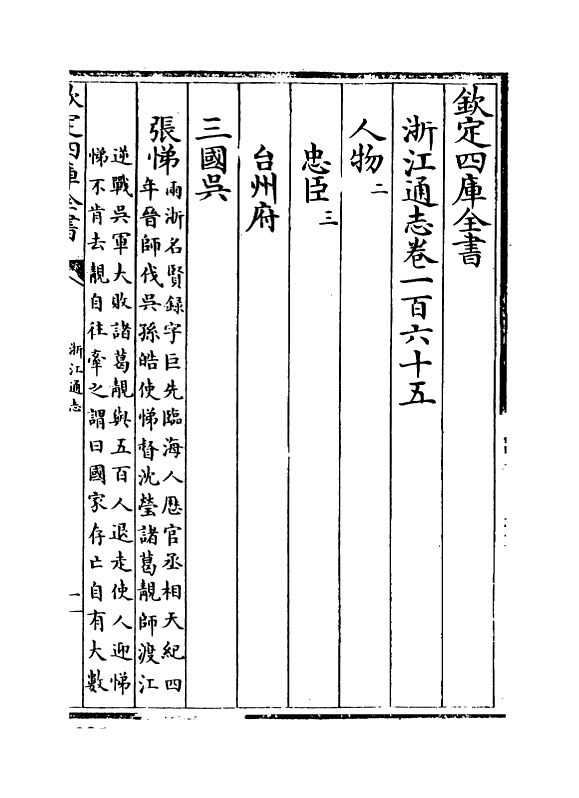 欽定四庫全書
浙江通志卷一百六十五
人物二
忠臣三
台州府
三國吳
張悌兩浙名賢録字巨先臨海人歴官丞相天紀四
年晉師伐吳孫皓使悌督沈瑩諸葛靚師渡江
逆戰吳軍大敗諸葛靚與五百人退走使人迎悌
悌不肯去靚自往牽之謂曰國家存亡自有大數
欽定四庫全書
浙江通志
一